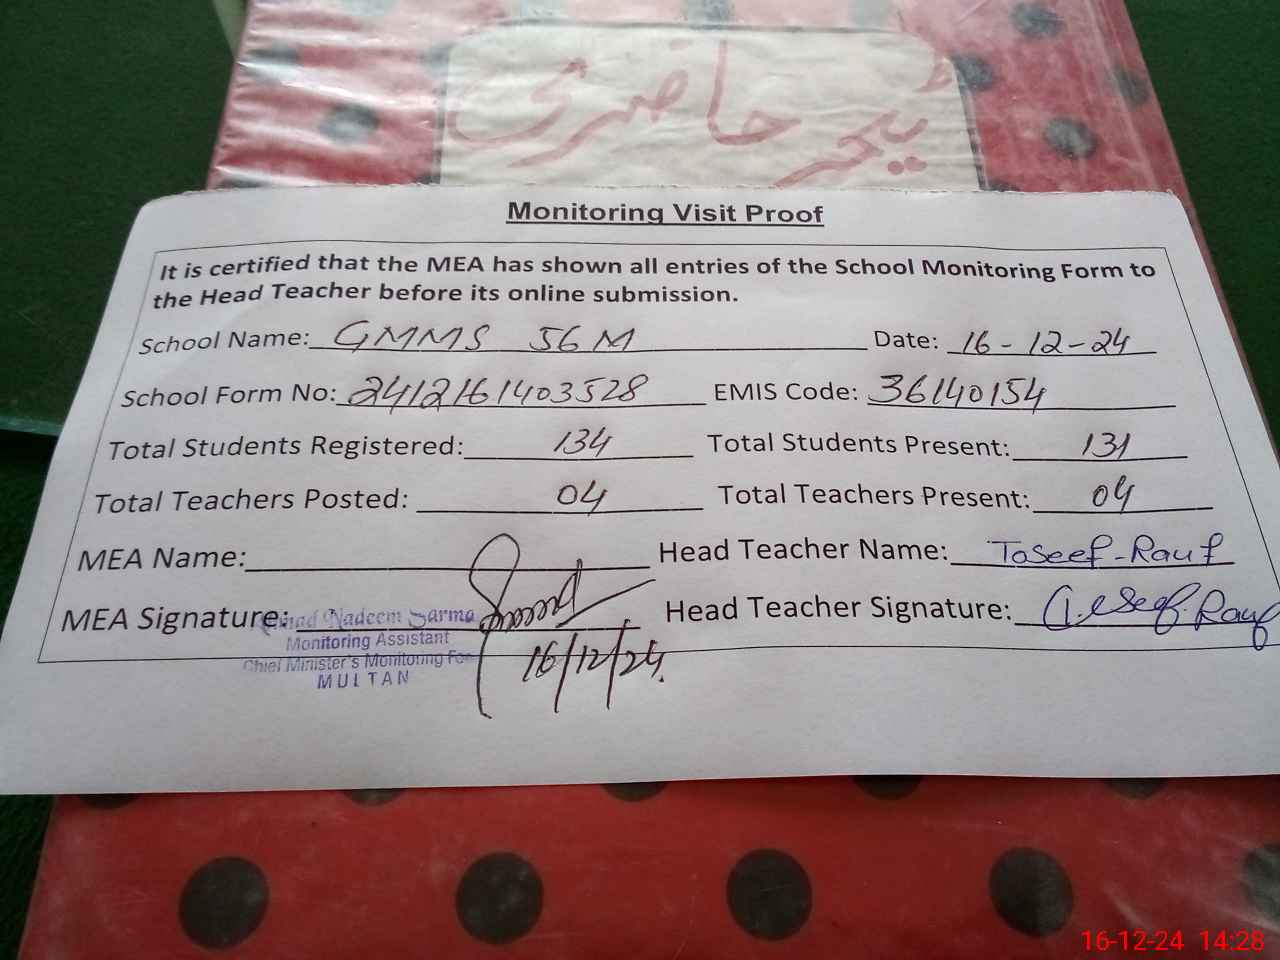 ٹیچر حاضری
Monitoring Visit Proof
It is certified that the MEA has shown all entries of the School Monitoring Form to
the Head Teacher before its online submission.
School Name: GMMS 56 M Date: 16-12-24
School Form No: 2412161403528 EMIS Code: 36140154
Total Students Registered: 134 Total Students Present: 131
Total Teachers Posted: 04 Total Teachers Present: 04
MEA Name: Head Teacher Name: Taseef-Rauf
MEA Signature: Nadeem Head Teacher Signature: Rauf
Monitoring Assistant
Chief Minister's Monitoring
MULTAN
16/12/24.
16-12-24 14:28